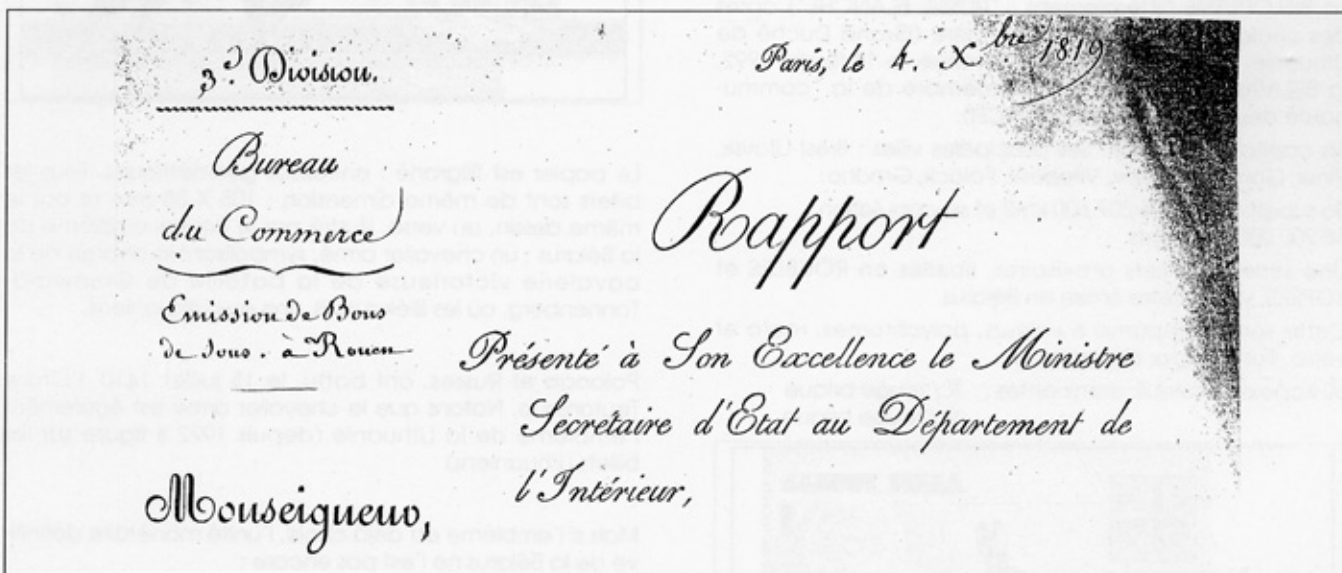 3.e Division.
Bureau
du Commerce
Emission de Bons
de sous. à Rouen
Monseigneur,
Paris, le 4. X bre 1819
Rapport
Présenté à Son Excellence le Ministre
Secrétaire d'Etat au Département de
l'Intérieur,